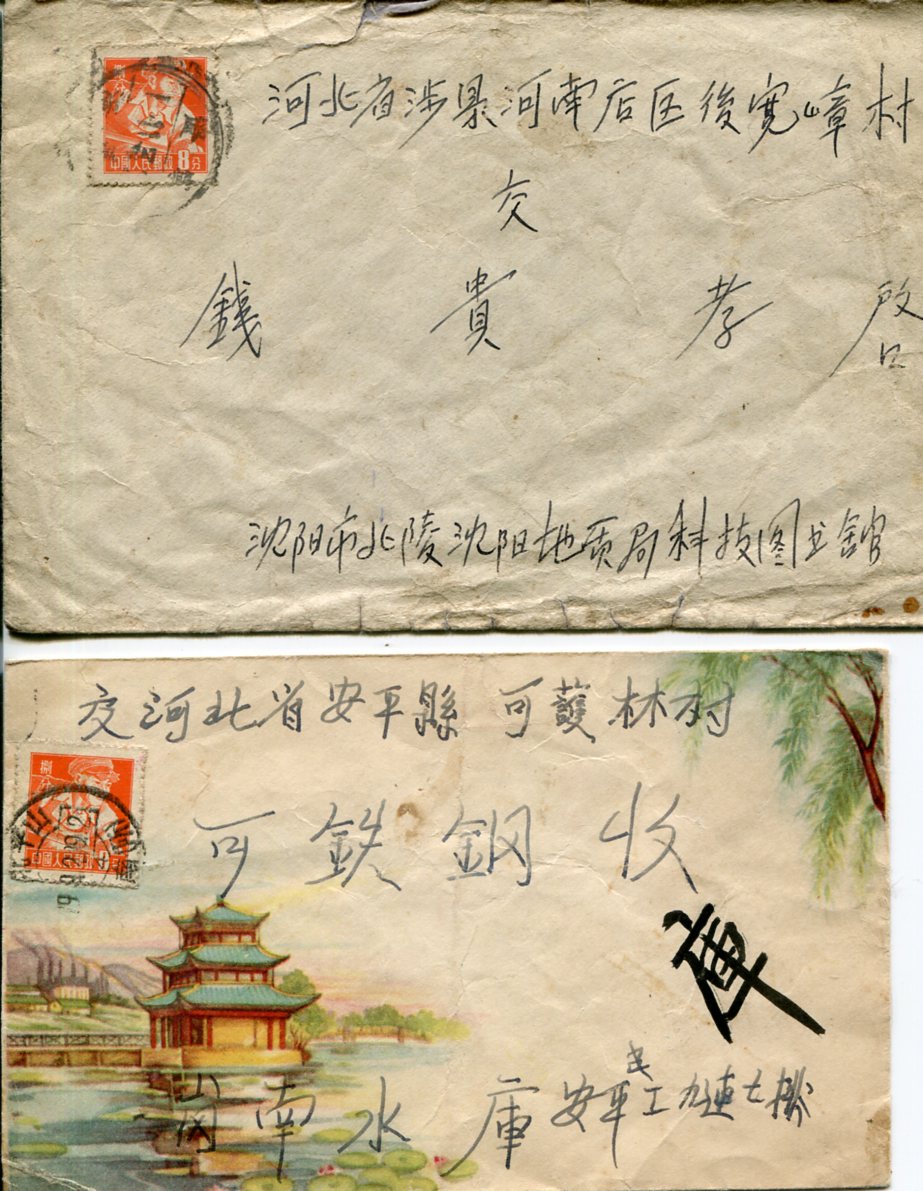 捌分
中國人民郵政 8分
河北省涉县河南店区後宽嶂村
交
錢貴孝 啟
沈阳市北陵沈阳地质局科技图书舘
交河北省安平縣可護林村
捌分
中國人民郵政
可鉄鋼收
庫
岡南水庫安平民工九連七